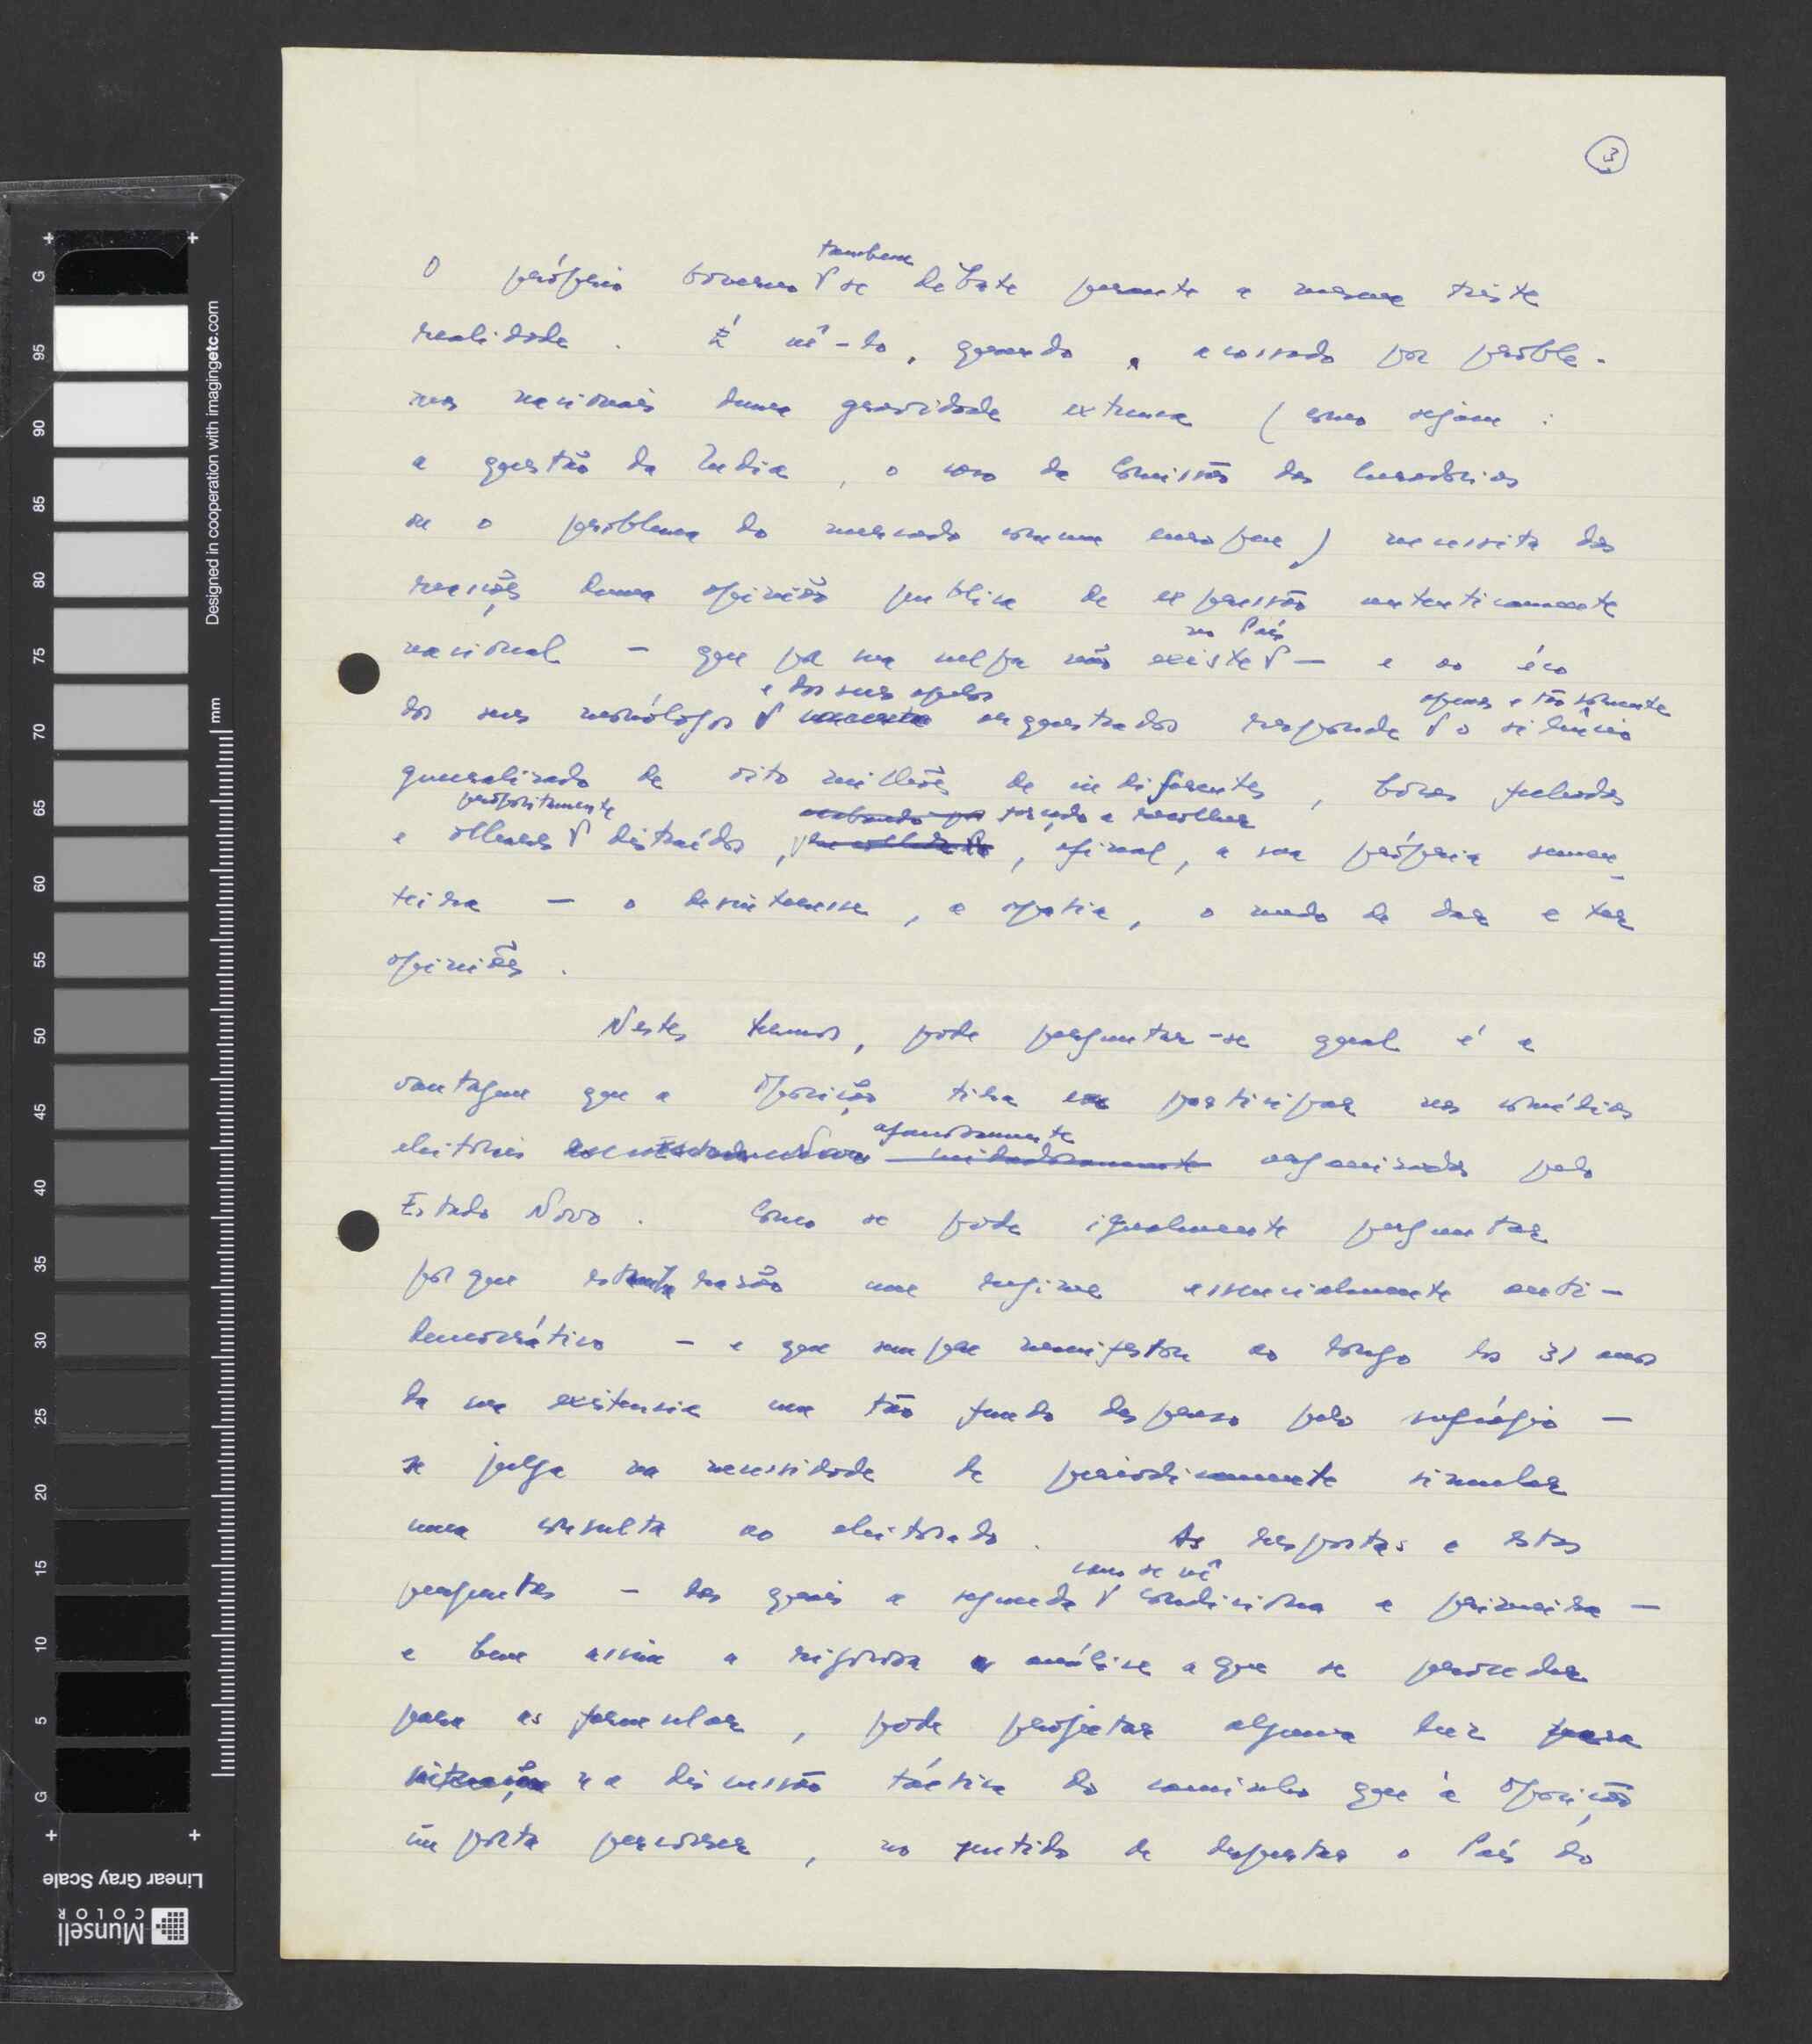 3
O próprio Governo também se debate perante a mesma triste
realidade. É vê-lo, quando, acossado por proble-
mas nacionais duma gravidade extrema (como sejam:
a questão da India, o caso da Comissão das Curadorias
ou o problema do mercado comum europeu) necessita das
reacções duma opinião publica de expressão autenticamente
nacional — que por sua culpa não existe no País — e ao éco
dos seus monólogos e dos seus apelos angustiados responde apenas e tão sómente o silêncio
generalizado de oito milhões de indiferentes, bôcas fechadas
e olhares propositamente distraídos, forçado a recolher, afinal, a sua própria semen-
teira — o desinteresse, a apatia, o medo de dar e ter
opiniões.
Nestes termos, pode perguntar-se qual é a
vantagem que a Oposição tira em participar nas comédias
eleitorais afanosamente cuidadosamente organizadas pelo
Estado Novo. Como se pode igualmente perguntar
por que razão um regime essencialmente anti-
democrático — e que sempre manifestou ao longo dos 31 anos
da sua existencia um tão fundo desprezo pelo sufrágio —
se julga na necessidade de periodicamente simular
uma consulta ao eleitorado. As respostas a estas
perguntas — das quais a segunda como se vê condiciona a primeira —
e bem assim a rigorosa análise a que se proceder
para as formular, pode projetar alguma luz para
situação na discussão táctica do caminho que à Oposição
importa percorrer, no sentido de despertar o País do
Designed in cooperation with imagingetc.com
mm
G
95
90
85
80
75
70
65
60
55
50
45
40
35
30
25
20
15
10
5
G
Linear Gray Scale
Munsell
COLOR